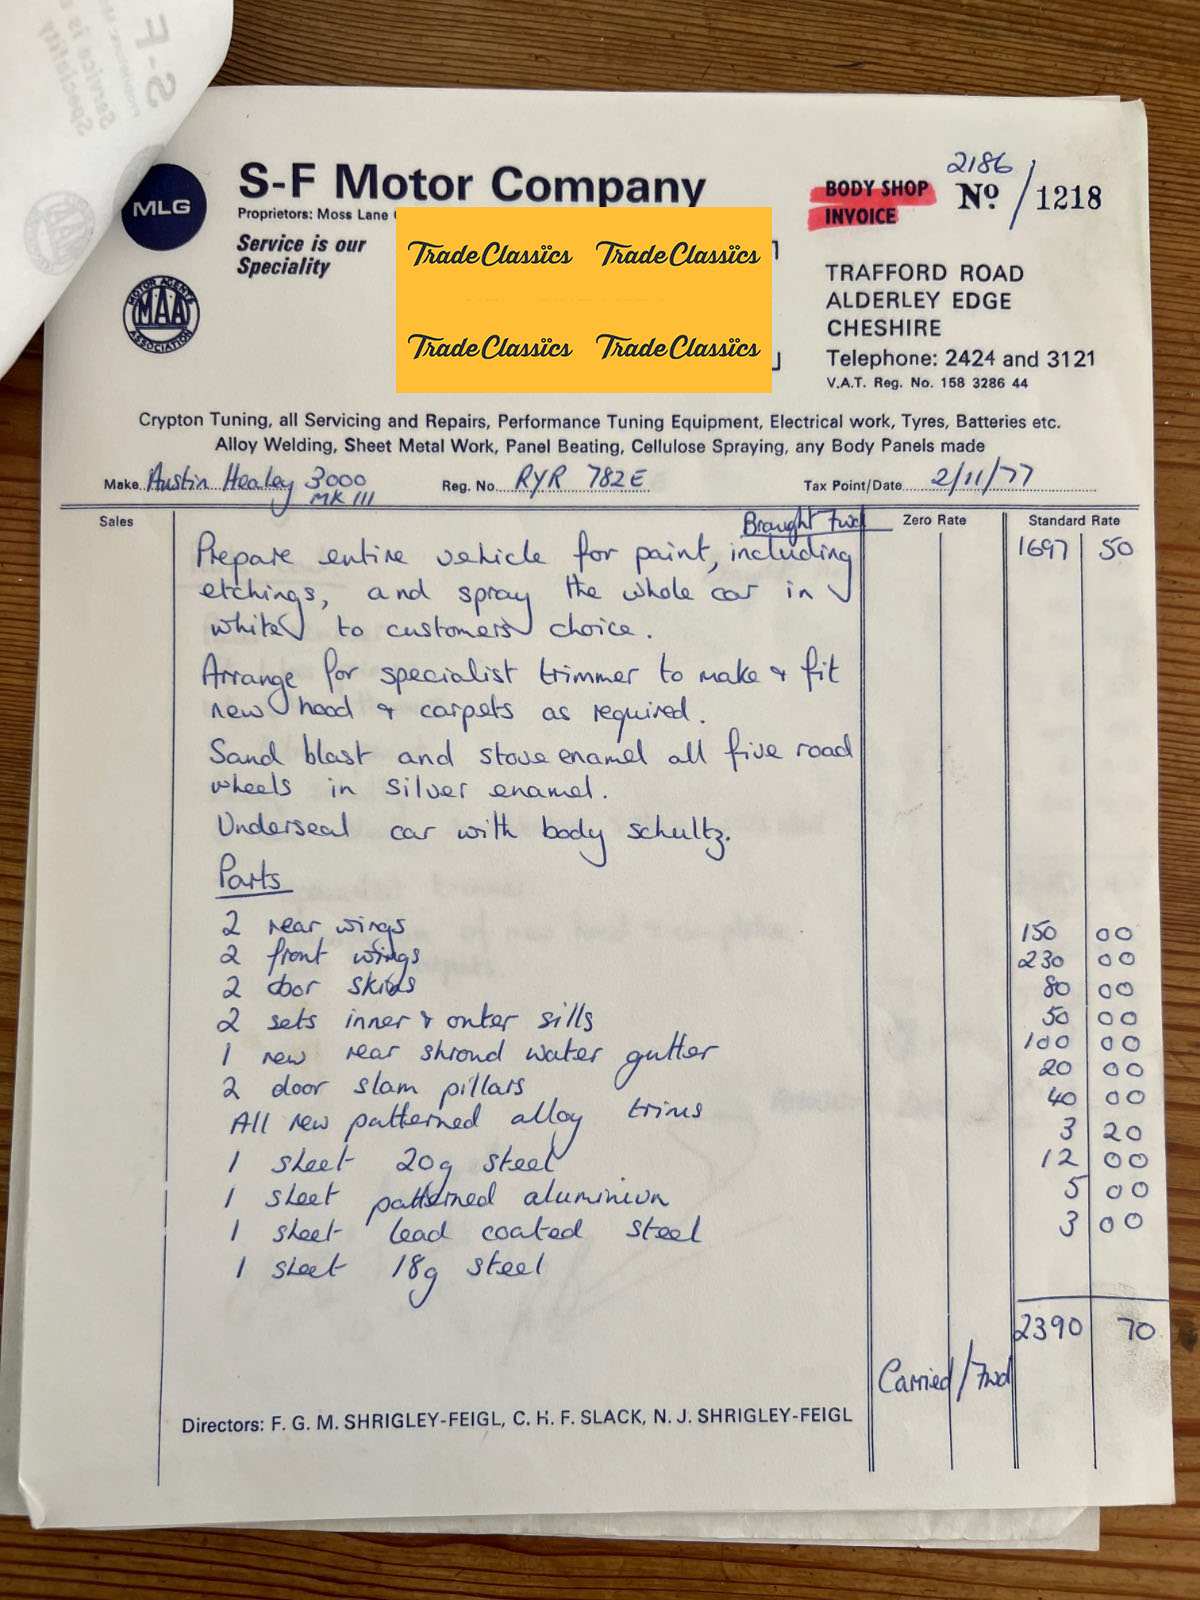 S-F Motor Company
Proprietors: Moss Lane
Service is our
Speciality
MLG
MOTOR AGENTS
MAA
ASSOCIATION
TradeClassics TradeClassics
TradeClassics TradeClassics
BODY SHOP
INVOICE
2186
Nº / 1218
TRAFFORD ROAD
ALDERLEY EDGE
CHESHIRE
Telephone: 2424 and 3121
V.A.T. Reg. No. 158 3286 44
Crypton Tuning, all Servicing and Repairs, Performance Tuning Equipment, Electrical work, Tyres, Batteries etc.
Alloy Welding, Sheet Metal Work, Panel Beating, Cellulose Spraying, any Body Panels made
Make Austin Healey 3000 Reg. No. RYR 782E Tax Point/Date 2/11/77
MK III
Sales Brought Fwd Zero Rate Standard Rate
Prepare entire vehicle for paint, including 1697 50
etchings, and spray the whole car in
white to customers choice.
Arrange for specialist trimmer to make & fit
new hood & carpets as required.
Sand blast and stove enamel all five road
wheels in silver enamel.
Underseal car with body schultz.
Parts
2 rear wings 150 00
2 front wings 230 00
2 door skins 80 00
2 sets inner & outer sills 50 00
1 new rear shroud water gutter 100 00
2 door slam pillars 20 00
All new patterned alloy trims 40 00
1 sheet 20g steel 3 20
1 sheet patterned aluminium 12 00
1 sheet lead coated steel 5 00
1 sheet 18g steel 3 00
2390 70
Carried/Fwd
Directors: F. G. M. SHRIGLEY-FEIGL, C. H. F. SLACK, N. J. SHRIGLEY-FEIGL